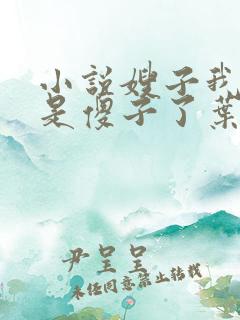 小说嫂子我
是傻子了葉
尹呈呈
未经同意禁止转载